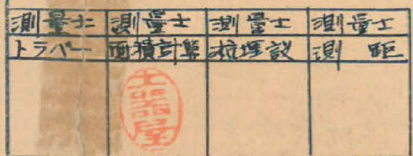 測量士 測量士 測量士 測量士
トラバー 面積計算 杭埋設 測距